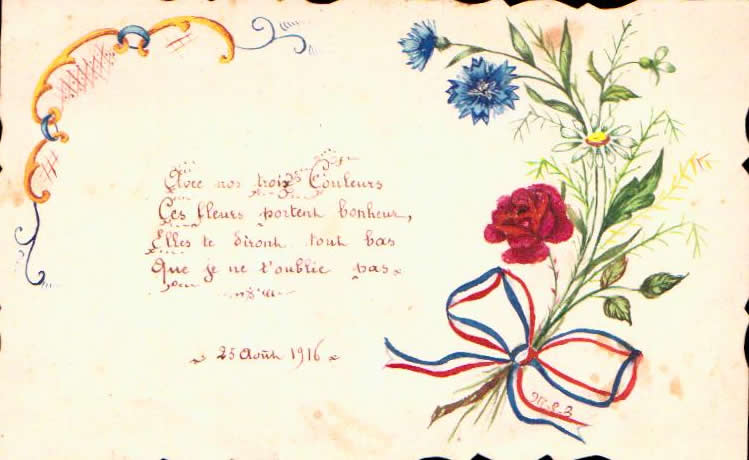 Avec nos trois Couleurs
Ces fleurs portent bonheur,
Elles te diront tout bas
Que je ne t'oublie pas.
25 Août 1916